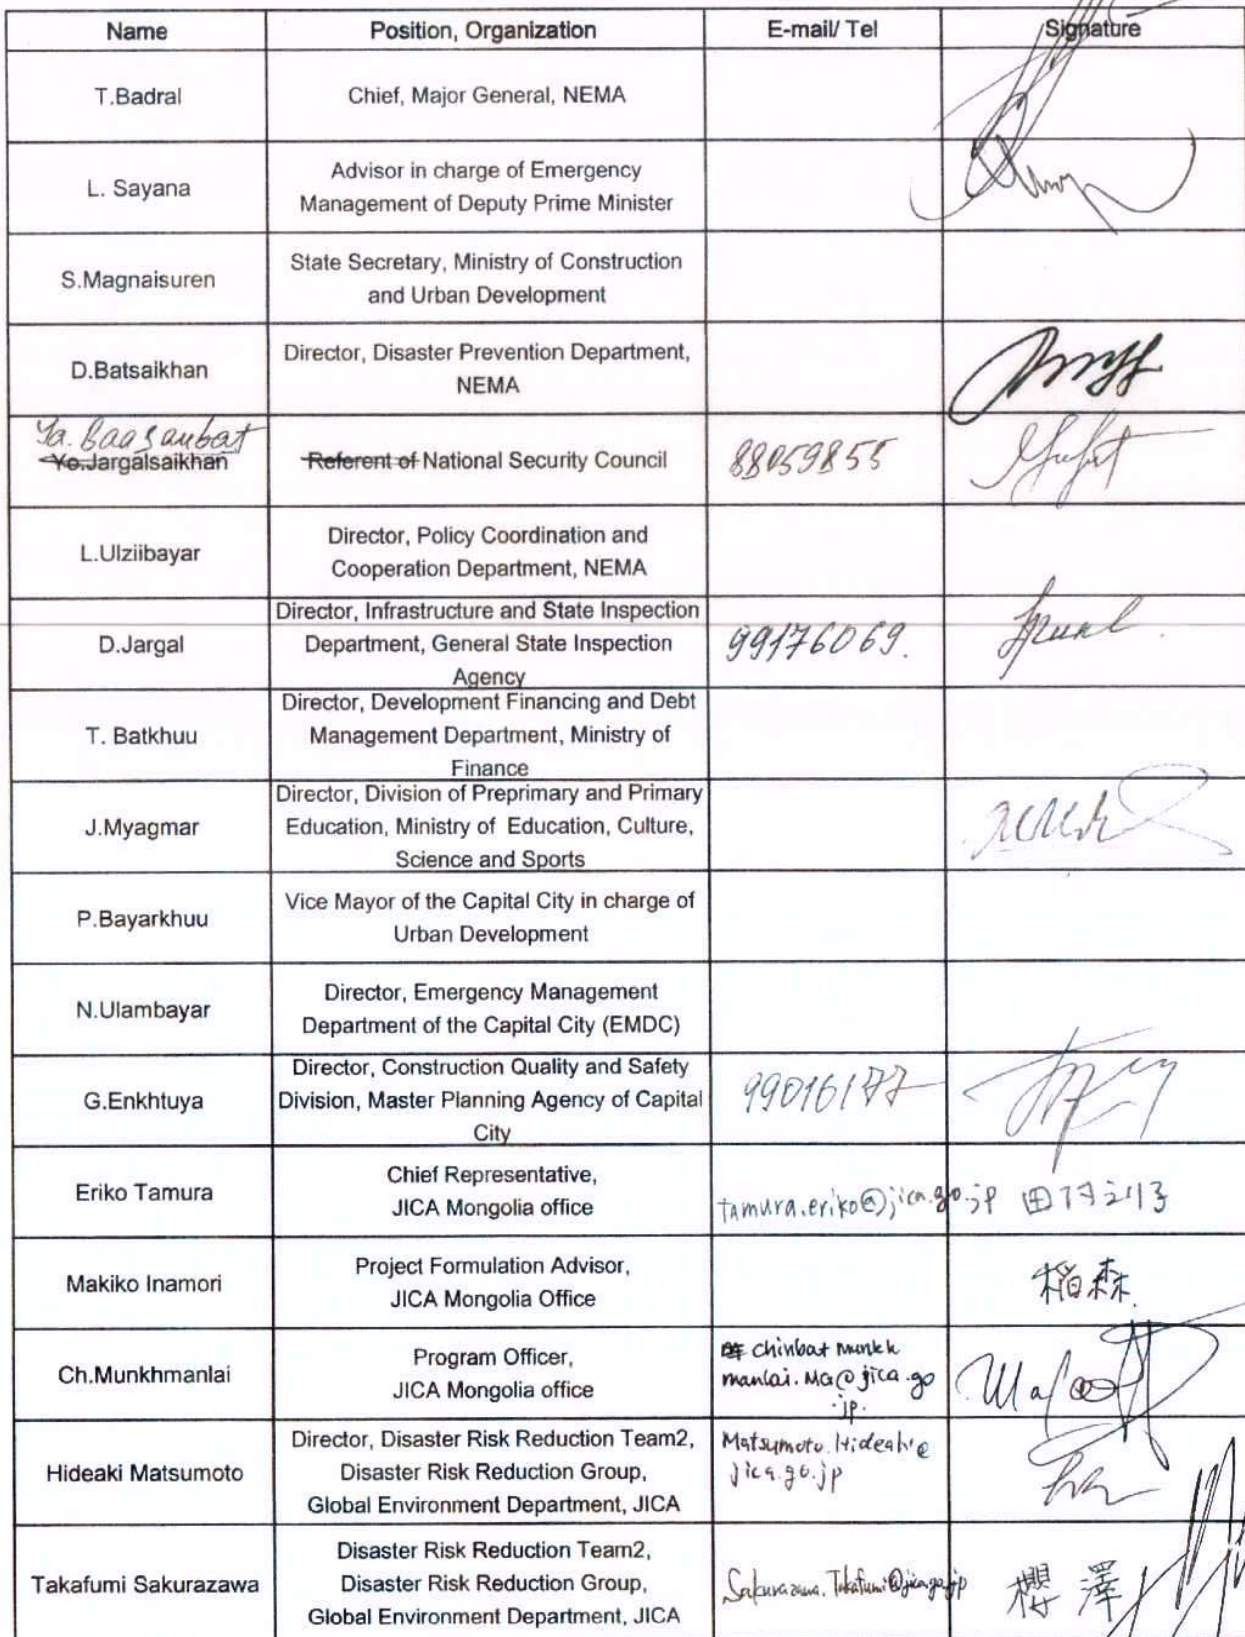 Name Position, Organization E-mail/ Tel Signature
T.Badral Chief, Major General, NEMA
L. Sayana Advisor in charge of Emergency
Management of Deputy Prime Minister
S.Magnaisuren State Secretary, Ministry of Construction
and Urban Development
D.Batsaikhan Director, Disaster Prevention Department,
NEMA
Ya. Baasanbat
Yo.Jargalsaikhan Referent of National Security Council 88059855
L.Ulziibayar Director, Policy Coordination and
Cooperation Department, NEMA
Director, Infrastructure and State Inspection
D.Jargal Department, General State Inspection 99176069.
Agency
Director, Development Financing and Debt
T. Batkhuu Management Department, Ministry of
Finance
Director, Division of Preprimary and Primary
J.Myagmar Education, Ministry of Education, Culture,
Science and Sports
P.Bayarkhuu Vice Mayor of the Capital City in charge of
Urban Development
N.Ulambayar Director, Emergency Management
Department of the Capital City (EMDC)
Director, Construction Quality and Safety
G.Enkhtuya Division, Master Planning Agency of Capital 99016177
City
Eriko Tamura Chief Representative,
JICA Mongolia office tamura.eriko@jica.go.jp
Makiko Inamori Project Formulation Advisor, 稲森
JICA Mongolia Office
Ch.Munkhmanlai Program Officer, Chinbat Munkh
JICA Mongolia office manlai.Ma@jica.go
.jp.
Director, Disaster Risk Reduction Team2, Matsumoto.Hideaki@
Hideaki Matsumoto Disaster Risk Reduction Group, jica.go.jp
Global Environment Department, JICA
Disaster Risk Reduction Team2,
Takafumi Sakurazawa Disaster Risk Reduction Group, Sakurazawa.Takafumi@jica.go.jp 櫻澤
Global Environment Department, JICA